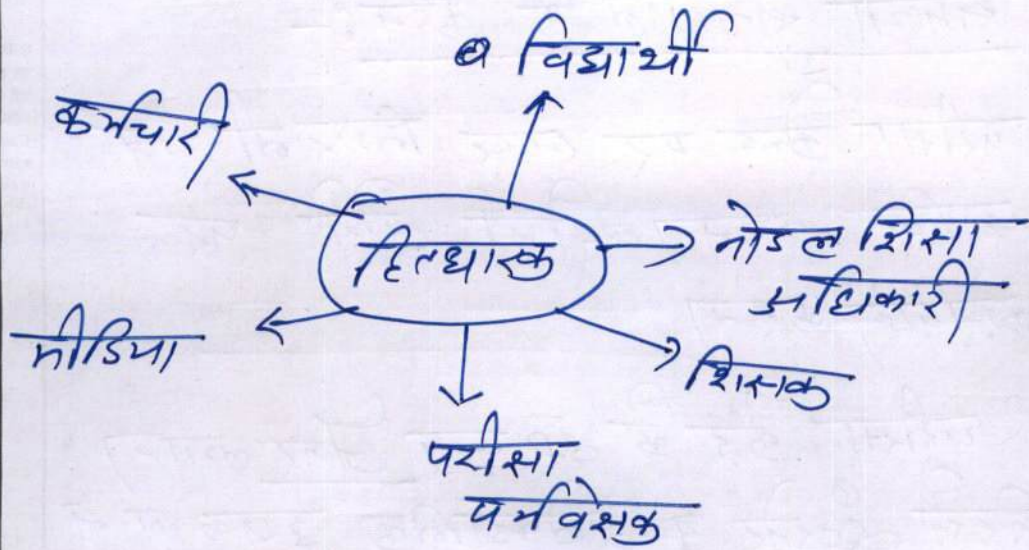 विद्यार्थी
कर्मचारी
हितधारक
नोडल शिक्षा
अधिकारी
मीडिया
शिक्षक
परीक्षा
पर्यवेक्षक